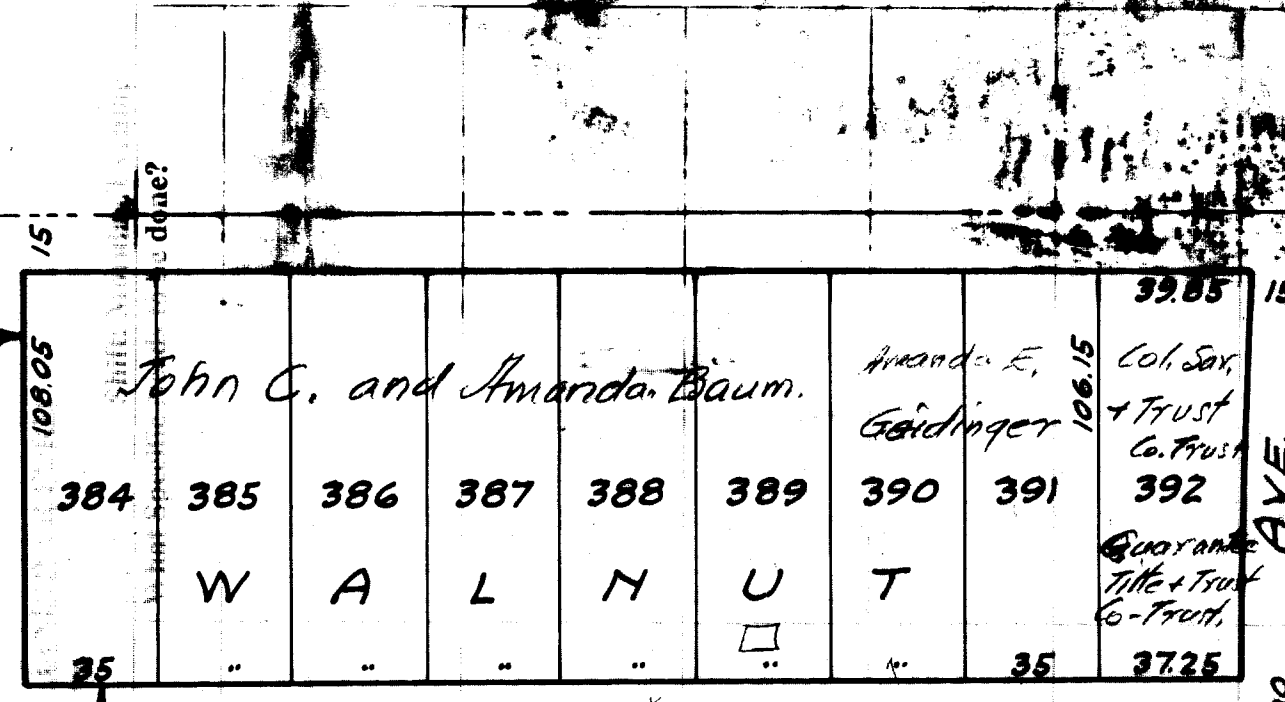 done?
15
39.85 15
108.05
John C. and Amanda Baum.
Amanda E.
Geidinger
106.15
Col. Sav.
+ Trust
Co. Trust
384 385 386 387 388 389 390 391 392
AVE.
W A L N U T
Guarantee
Title + Trust
Co-Trust.
35 " " " " " " 35 37.25